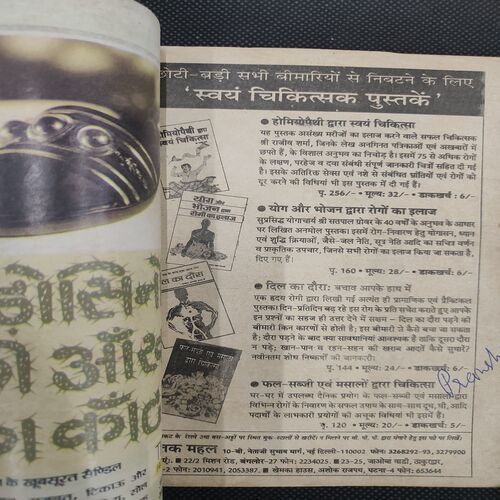 छोटी-बड़ी सभी बीमारियों से निबटने के लिए
'स्वयं चिकित्सक पुस्तकें'
● होमियोपैथी द्वारा स्वयं चिकित्सा
यह पुस्तक असंख्य मरीजों का इलाज करने वाले सफल चिकित्सक
श्री राजीव शर्मा, जिनके लेख अनगिनत पत्रिकाओं एवं अखबारों में
छपते हैं, के विशाल अनुभव का निचोड़ है। इसमें 75 से अधिक रोगों
के लक्षण, परहेज व दवा संबंधी संपूर्ण जानकारी चित्रों सहित दी गई
है। इसके अतिरिक्त सेक्स एवं नशे से संबंधित भ्रांतियों एवं रोगों को
दूर करने की विधियां भी इस पुस्तक में दी गई हैं।
पृ. 256/- • मूल्य: 32/- • डाकखर्च: 6/-
● योग और भोजन द्वारा रोगों का इलाज
सुप्रसिद्ध योगाचार्य श्री सतपाल ग्रोवर के 40 वर्षों के अनुभव के आधार
पर लिखित अनमोल पुस्तक। इसमें रोग-निवारण हेतु योगासन, ध्यान
एवं शुद्धि क्रियाओं, जैसे-जल नेति, सूत्र नेति आदि का सचित्र वर्णन
व प्राकृतिक उपचार, जिनसे सभी रोगों का इलाज किया जा सकता है,
दिए गए हैं।
पृ. 160 • मूल्य: 28/- • डाकखर्च: 6/-
● दिल का दौरा: बचाव आपके हाथ में
एक हृदय रोगी द्वारा लिखी गई अत्यंत ही प्रामाणिक एवं प्रैक्टिकल
पुस्तक। दिन-प्रतिदिन बढ़ रहे इस रोग के प्रति सचेत कराते हुए आपके
इन प्रश्नों का सहज ही उत्तर देने में सक्षम – दिल का दौरा पड़ने की
बीमारी किन कारणों से होती है; इस बीमारी से कैसे बचा जा सकता
है; दौरा पड़ने के बाद क्या सावधानियां आवश्यक हैं ताकि दूसरा दौरा
न पड़े; खान-पान व रहन-सहन की खराब आदतें कैसे सुधारें?
नवीनतम शोध निष्कर्षों की जानकारी।
पृ. 144 • मूल्य: 24/- • डाकखर्च: 6/-
● फल-सब्जी एवं मसालों द्वारा चिकित्सा
घर-घर में उपलब्ध दैनिक प्रयोग के फल-सब्जी एवं मसालों द्वारा
विभिन्न रोगों के निवारण के सफल उपाय के साथ-साथ दूध, घी, आदि
पदार्थों के लाभकारी प्रयोगों की अचूक विधियां भी इसमें हैं।
पृ. 120 • मूल्य: 20/- • डाकखर्च: 5/-
होमियोपैथी द्वारा
स्वयं चिकित्सा
योग और
भोजन द्वारा
रोगों का इलाज
दिल का दौरा
फल-सब्जी एवं मसालों
द्वारा चिकित्सा
तक महल 10-बी, नेताजी सुभाष मार्ग, नई दिल्ली-110002. फोन: 3268292-93, 3279900
22/2 मिशन रोड, बंगलोर-27 फोन: 2234025 • 23-25, जाओबा वाडी, ठाकुरद्वार,
-2 फोन: 2010941, 2053387. • खेमका हाउस, अशोक राजपथ, पटना-4 फोन: 653644
के खूबसूरत सैण्डिल
टिकाऊ और